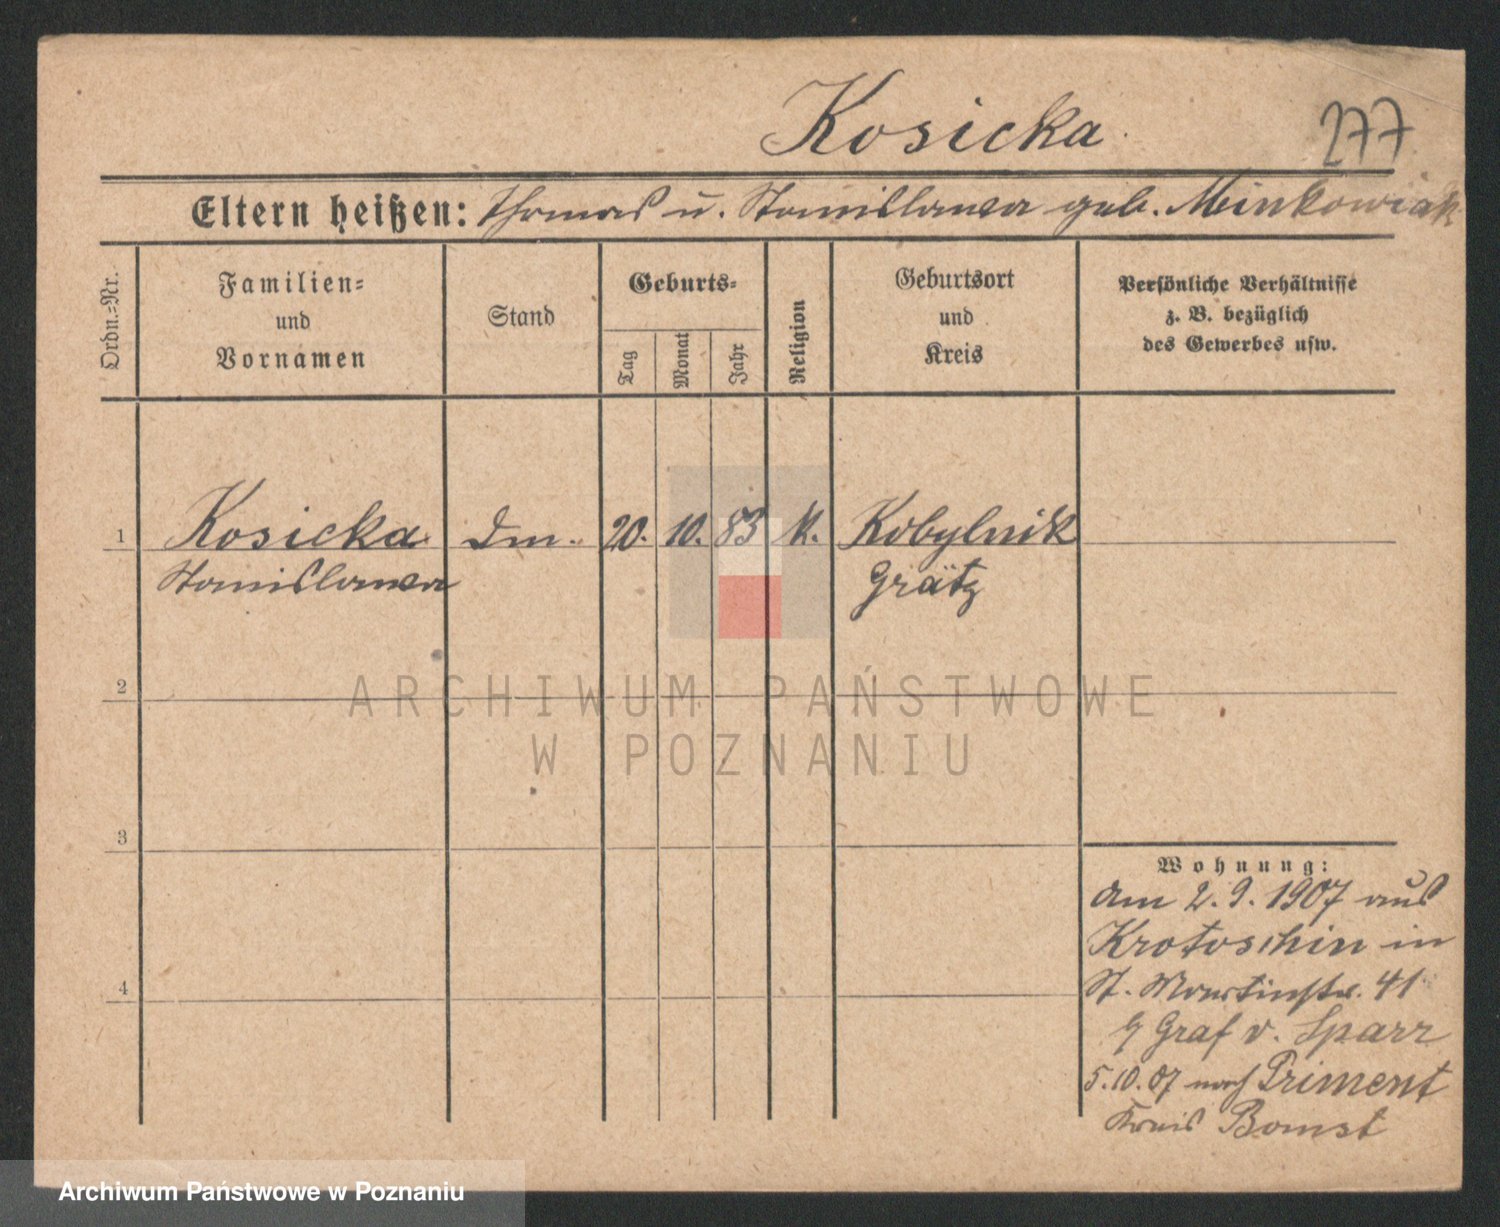 Kosicka
277
Eltern heißen: Thomas u. Stanislawa geb. Minkowiak
Ordn.=Nr.
Familien= und Vornamen
Stand
Geburts=
Tag
Monat
Jahr
Religion
Geburtsort und Kreis
Persönliche Verhältnisse
z. B. bezüglich
des Gewerbes usw.
1 Kosicka Dm. 20. 10. 83 k. Kobylnik
Stanislawa Grätz
2
ARCHIWUM PAŃSTWOWE
W POZNANIU
3
Wohnung:
Am 2. 9. 1907 aus
Krotoschin in
St. Martinstr. 41
Graf v. Sparr
4
5.10.07 nach Priment
Kreis Bomst
Archiwum Państwowe w Poznaniu